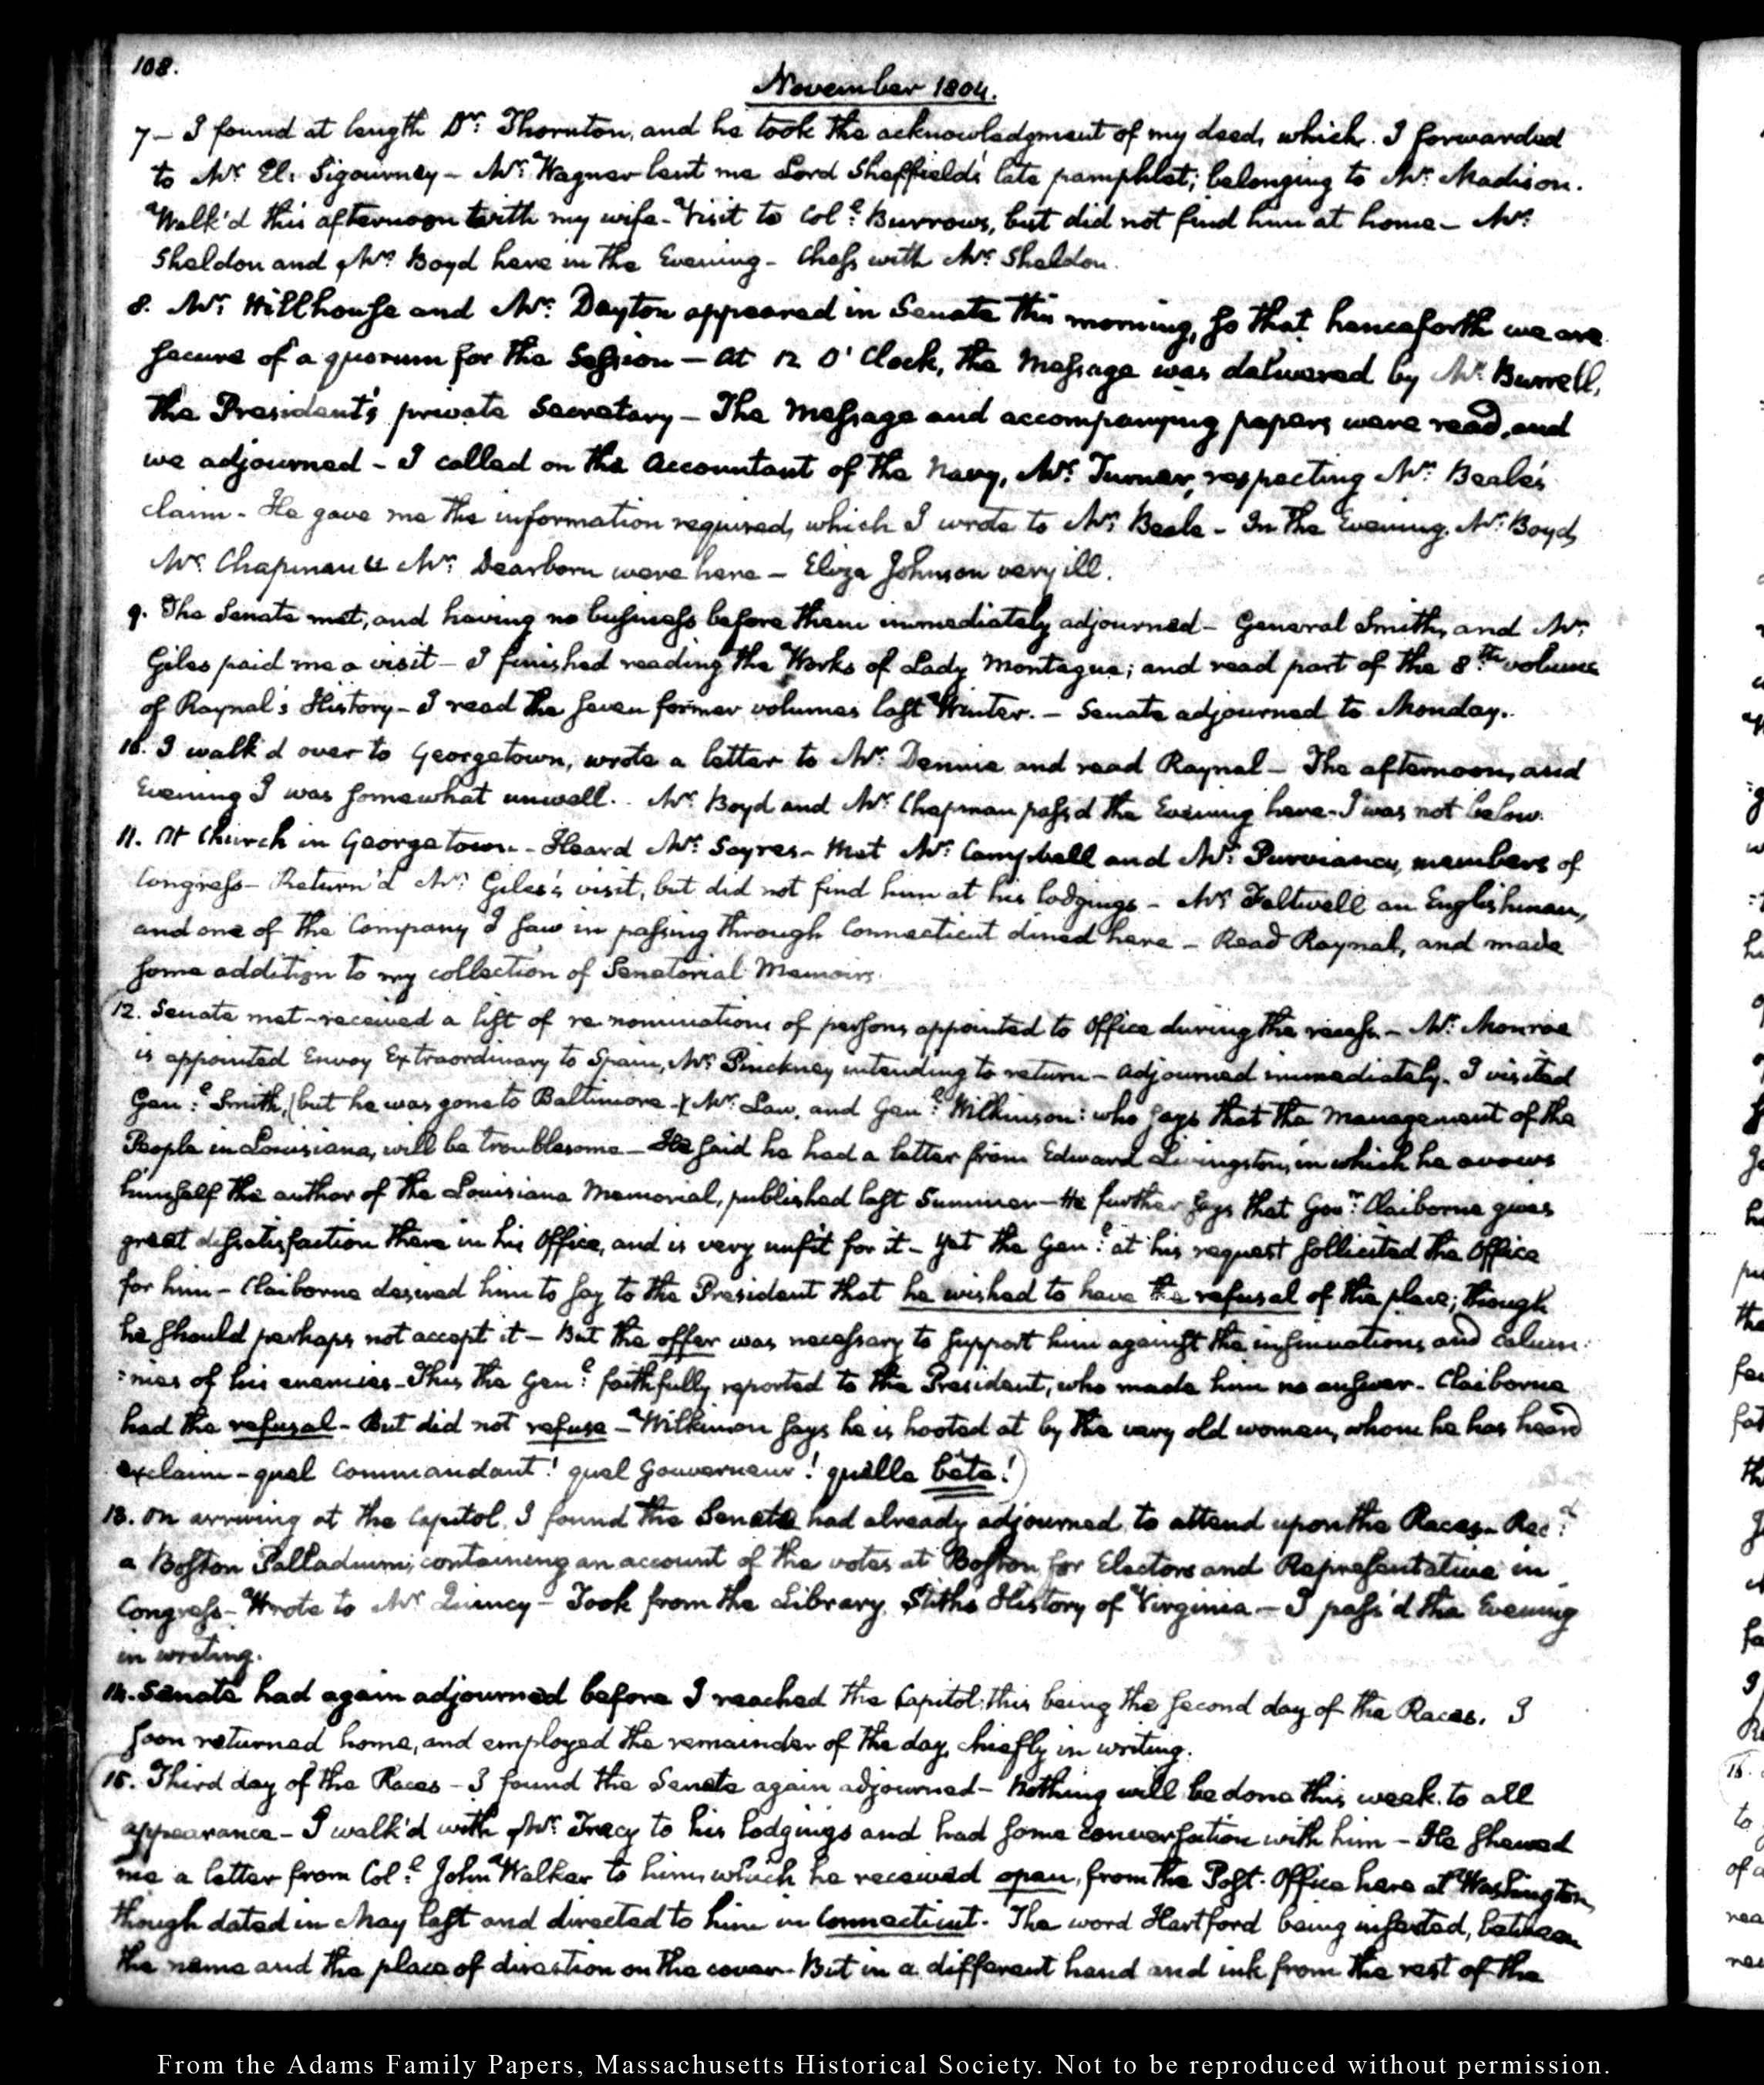 108.
November 1804.
7 – I found at length Dr: Thornton, and he took the acknowledgment of my deed, which I forwarded
to Mr. El: Sigourney – Mr: Wagner lent me Lord Sheffield's late pamphlet; belonging to Mr. Madison.
Walk'd this afternoon with my wife – Visit to Coll: Burrows, but did not find him at home – Mr:
Sheldon and Mr: Boyd here in the Evening – Chess with Mr: Sheldon.
8. Mr: Hillhouse and Mr: Dayton appeared in Senate this morning, so that henceforth we are
secure of a quorum for the Session – At 12 O'Clock, the Message was delivered by Mr. Burrell,
the President's private Secretary – The Message and accompanying papers were read, and
we adjourned – I called on the Accountant of the Navy, Mr: Turner, respecting Mr: Beale's
claim – He gave me the information required, which I wrote to Mr: Beale – In the Evening, Mr: Boyd,
Mr: Chapman & Mr: Dearborn were here – Eliza Johnson very ill.
9. The Senate met, and having no business before them immediately adjourned – General Smith, and Mr:
Giles paid me a visit – I finished reading the Works of Lady Montague; and read part of the 8th: volume
of Raynal's History – I read the seven former volumes last Winter. – Senate adjourned to Monday.
10. I walk'd over to Georgetown, wrote a letter to Mr: Dennie and read Raynal – The afternoon, and
Evening I was somewhat unwell. Mr: Boyd and Mr: Chapman pass'd the Evening here – I was not below.
11. At Church in Georgetown – Heard Mr: Sayres – Met Mr: Campbell and Mr: Purviance, members of
Congress – Return'd Mr: Giles's visit, but did not find him at his lodgings – Mr: Feltwell an Englishman,
and one of the Company I saw in passing through Connecticut dined here – Read Raynal, and made
some addition to my collection of Senatorial Memoirs.
12. Senate met – received a list of re nominations of persons appointed to Office during the recess. – Mr: Monroe
is appointed Envoy Extraordinary to Spain, Mr: Pinckney intending to return – Adjourned immediately. I visited
Genl: Smith, (but he was gone to Baltimore –) Mr: Law, and Genl: Wilkinson: who says that the management of the
People in Louisiana, will be troublesome – He said he had a letter from Edward Livingston, in which he avows
himself the author of the Louisiana Memorial, published last Summer – He further says that Govr: Claiborne gives
great dissatisfaction there in his Office, and is very unfit for it – Yet the Genl: at his request sollicited the Office
for him – Claiborne desired him to say to the President that he wished to have the refusal of the place; though
he should perhaps not accept it – But the offer was necessary to support him against the insinuations and calum:
:nies of his enemies – This the Genl: faithfully reported to the President, who made him no answer – Claiborne
had the refusal – But did not refuse – Wilkinson says he is hooted at by the very old women, whom he has heard
exclaim – quel Commandant! quel Gouverneur! quelle bête!)
13. On arriving at the Capitol, I found the Senate had already adjourned, to attend upon the Races – Recd:
a Boston Palladium; containing an account of the votes at Boston for Electors and Representative in
Congress – Wrote to Mr Quincy – Took from the Library, Stiths History of Virginia – I pass'd the Evening
in writing.
14. Senate had again adjourned before I reached the Capitol: this being the second day of the Races. I
soon returned home, and employed the remainder of the day, chiefly in writing.
15. Third day of the Races – I found the Senate again adjourned – Nothing will be done this week, to all
appearance – I walk'd with Mr: Tracy to his lodgings and had some conversation with him – He shewed
me a letter from Coll: John Walker to him, which he received open, from the Post-Office here at Washington,
though dated in May last and directed to him in Connecticut. The word Hartford being inserted, between
the name and the place of direction on the cover – But in a different hand and ink from the rest of the
From the Adams Family Papers, Massachusetts Historical Society. Not to be reproduced without permission.